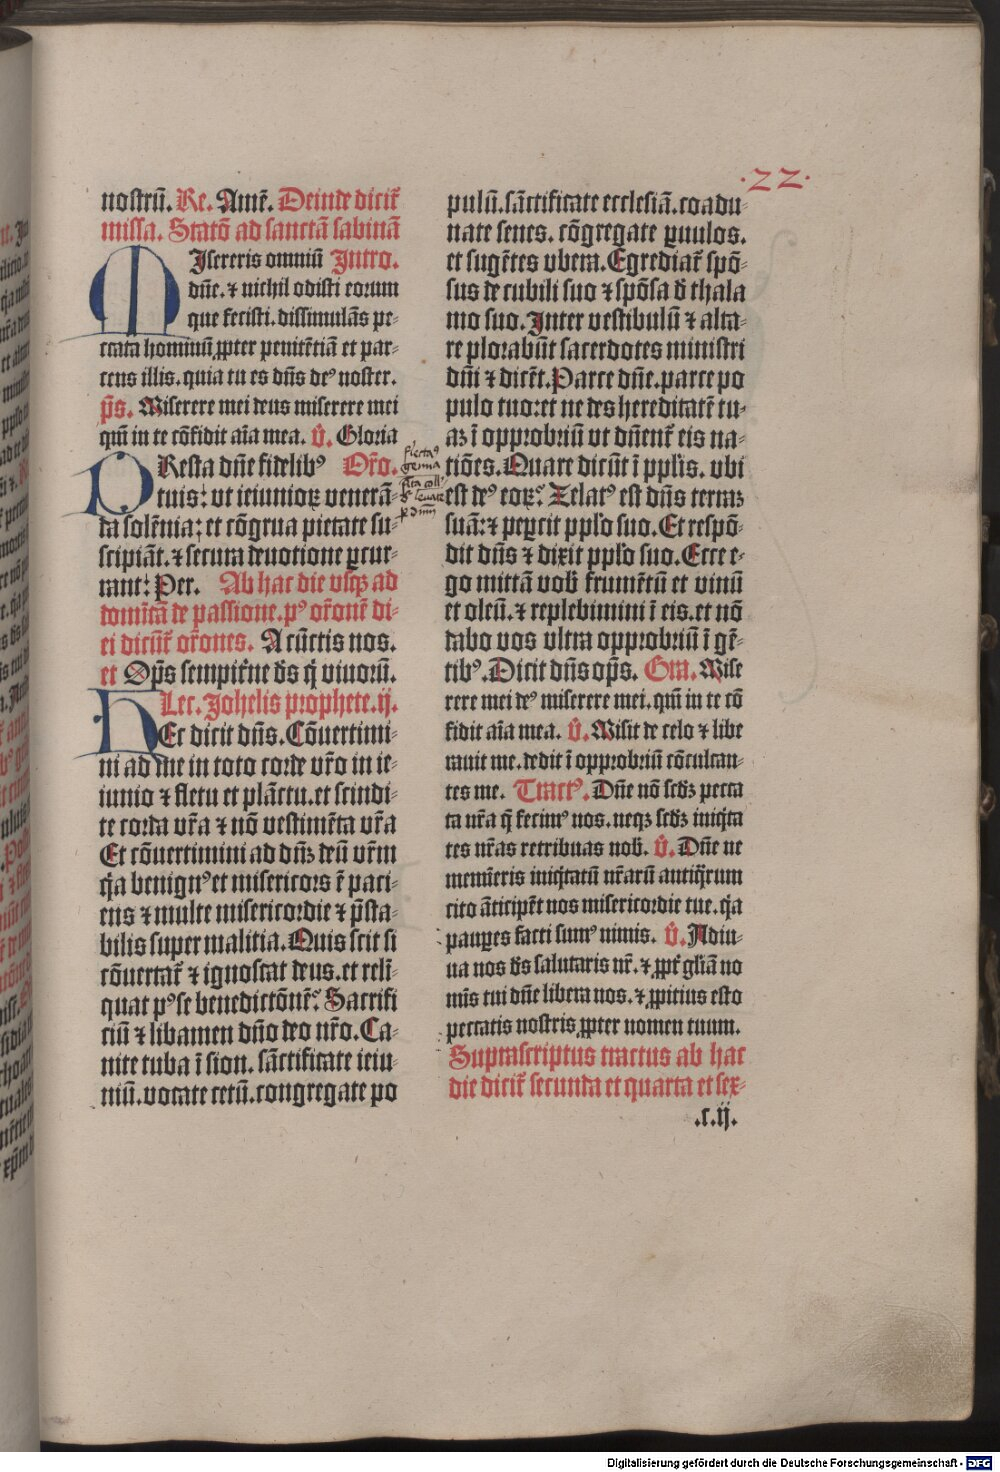 ·22·
nostrū. Re. Amē. Deinde dicit̄
missa. Statō ad sanctā sabinā
MIsereris omniū Intro.
dn̄e. ⁊ nichil odisti eorum
que fecisti. dissimulās pe-
ccata hominū ꝓpter penitētiā et par-
cens illis. quia tu es dn̄s deꝰ noster.
p̄s. Miserere mei deus miserere mei
qm̄ in te cōfidit aīa mea. v̄. Gloria
PResta dn̄e fidelibꝰ Or̄o.
tuis: ut ieiunioꝝ venerā-
da solēnia: et cōgrua pietate su-
scipiāt. ⁊ secura deuotione ꝑcur-
rant: Per. Ab hac die vsqꝫ ad
domīcā de passione. pꝰ or̄onē di-
ei dicūt̄ or̄ones. A cūctis nos.
et Op̄s sempit̄ne ds̄ q̄ viuorū.
Lec. Johelis prophete. ij.
HEc dicit dn̄s. Cōuertimi-
ni ad me in toto corde vr̄o in ie-
iunio ⁊ fletu et plāctu. et scindi-
te corda vr̄a ⁊ nō vestimēta vr̄a
Et cōuertimini ad dn̄ꝫ deū vr̄m
q̄a benignꝰ et misericors ē paci-
ens ⁊ multe misericordie ⁊ p̄sta-
bilis super malitia. Quis scit si
cōuertat̄ ⁊ ignoscat deus. et reli-
quat pꝰ se benedictōnē? Sacrifi
ciū ⁊ libamen dn̄o deo nr̄o. Ca-
nite tuba ī sion. sāctificate ieiu-
niū. vocate cetū. congregate po
pulū. sāctificate ecclesiā. coadu-
nate senes. cōgregate ꝑuulos.
et sugētes vbera. Egrediat̄ spō-
sus de cubili suo ⁊ spōsa d̄ thala
mo suo. Inter vestibulū ⁊ alta-
re plorabūt sacerdotes ministri
dn̄i ⁊ dicēt. Parce dn̄e. parce po
pulo tuo: et ne des hereditatē tu-
aꝫ ī opprobriū vt dn̄ent̄ eis na-
tiōes. Quare dicūt ī pplis. vbi
est deꝰ eoꝝ? Zelatꝰ est dn̄s terraꝫ
suā: ⁊ peꝑcit pplo suo. Et respō-
dit dn̄s ⁊ dixit pplo suo. Ecce e-
go mittā vob̄ frumētū et vinū
et oleū. ⁊ replebimini ī eis. et nō
dabo vos vltra opprobriū ī gē-
tibꝰ. Dicit dn̄s op̄s. Gra. Mise
rere mei deꝰ miserere mei. qm̄ in te cō
fidit aīa mea. v̄. Misit de celo ⁊ libe
rauit me. dedit ī opprobriū cōculcan-
tes me. Tractꝰ. Dn̄e nō scd̄ꝫ pecca
ta nr̄a q̄ fecimꝰ nos. neqꝫ scd̄ꝫ iniq̄ta
tes nr̄as retribuas nob̄. v̄. Dn̄e ne
memīeris iniq̄tatū nr̄arū antiq̄rum
cito āticipēt nos misericordie tue. q̄a
pauꝑes facti sumꝰ nimis. v̄. Adiu-
ua nos ds̄ salutaris nr̄. ⁊ ꝓpt̄ gl̄iā no
mīs tui dn̄e libera nos. ⁊ ꝓpitius esto
peccatis nostris ꝓpter nomen tuum.
Suprascriptus tractus ab hac
die dicit̄ secunda et quarta et sex-
.c. ij.
Digitalisierung gefördert durch die Deutsche Forschungsgemeinschaft - DFG